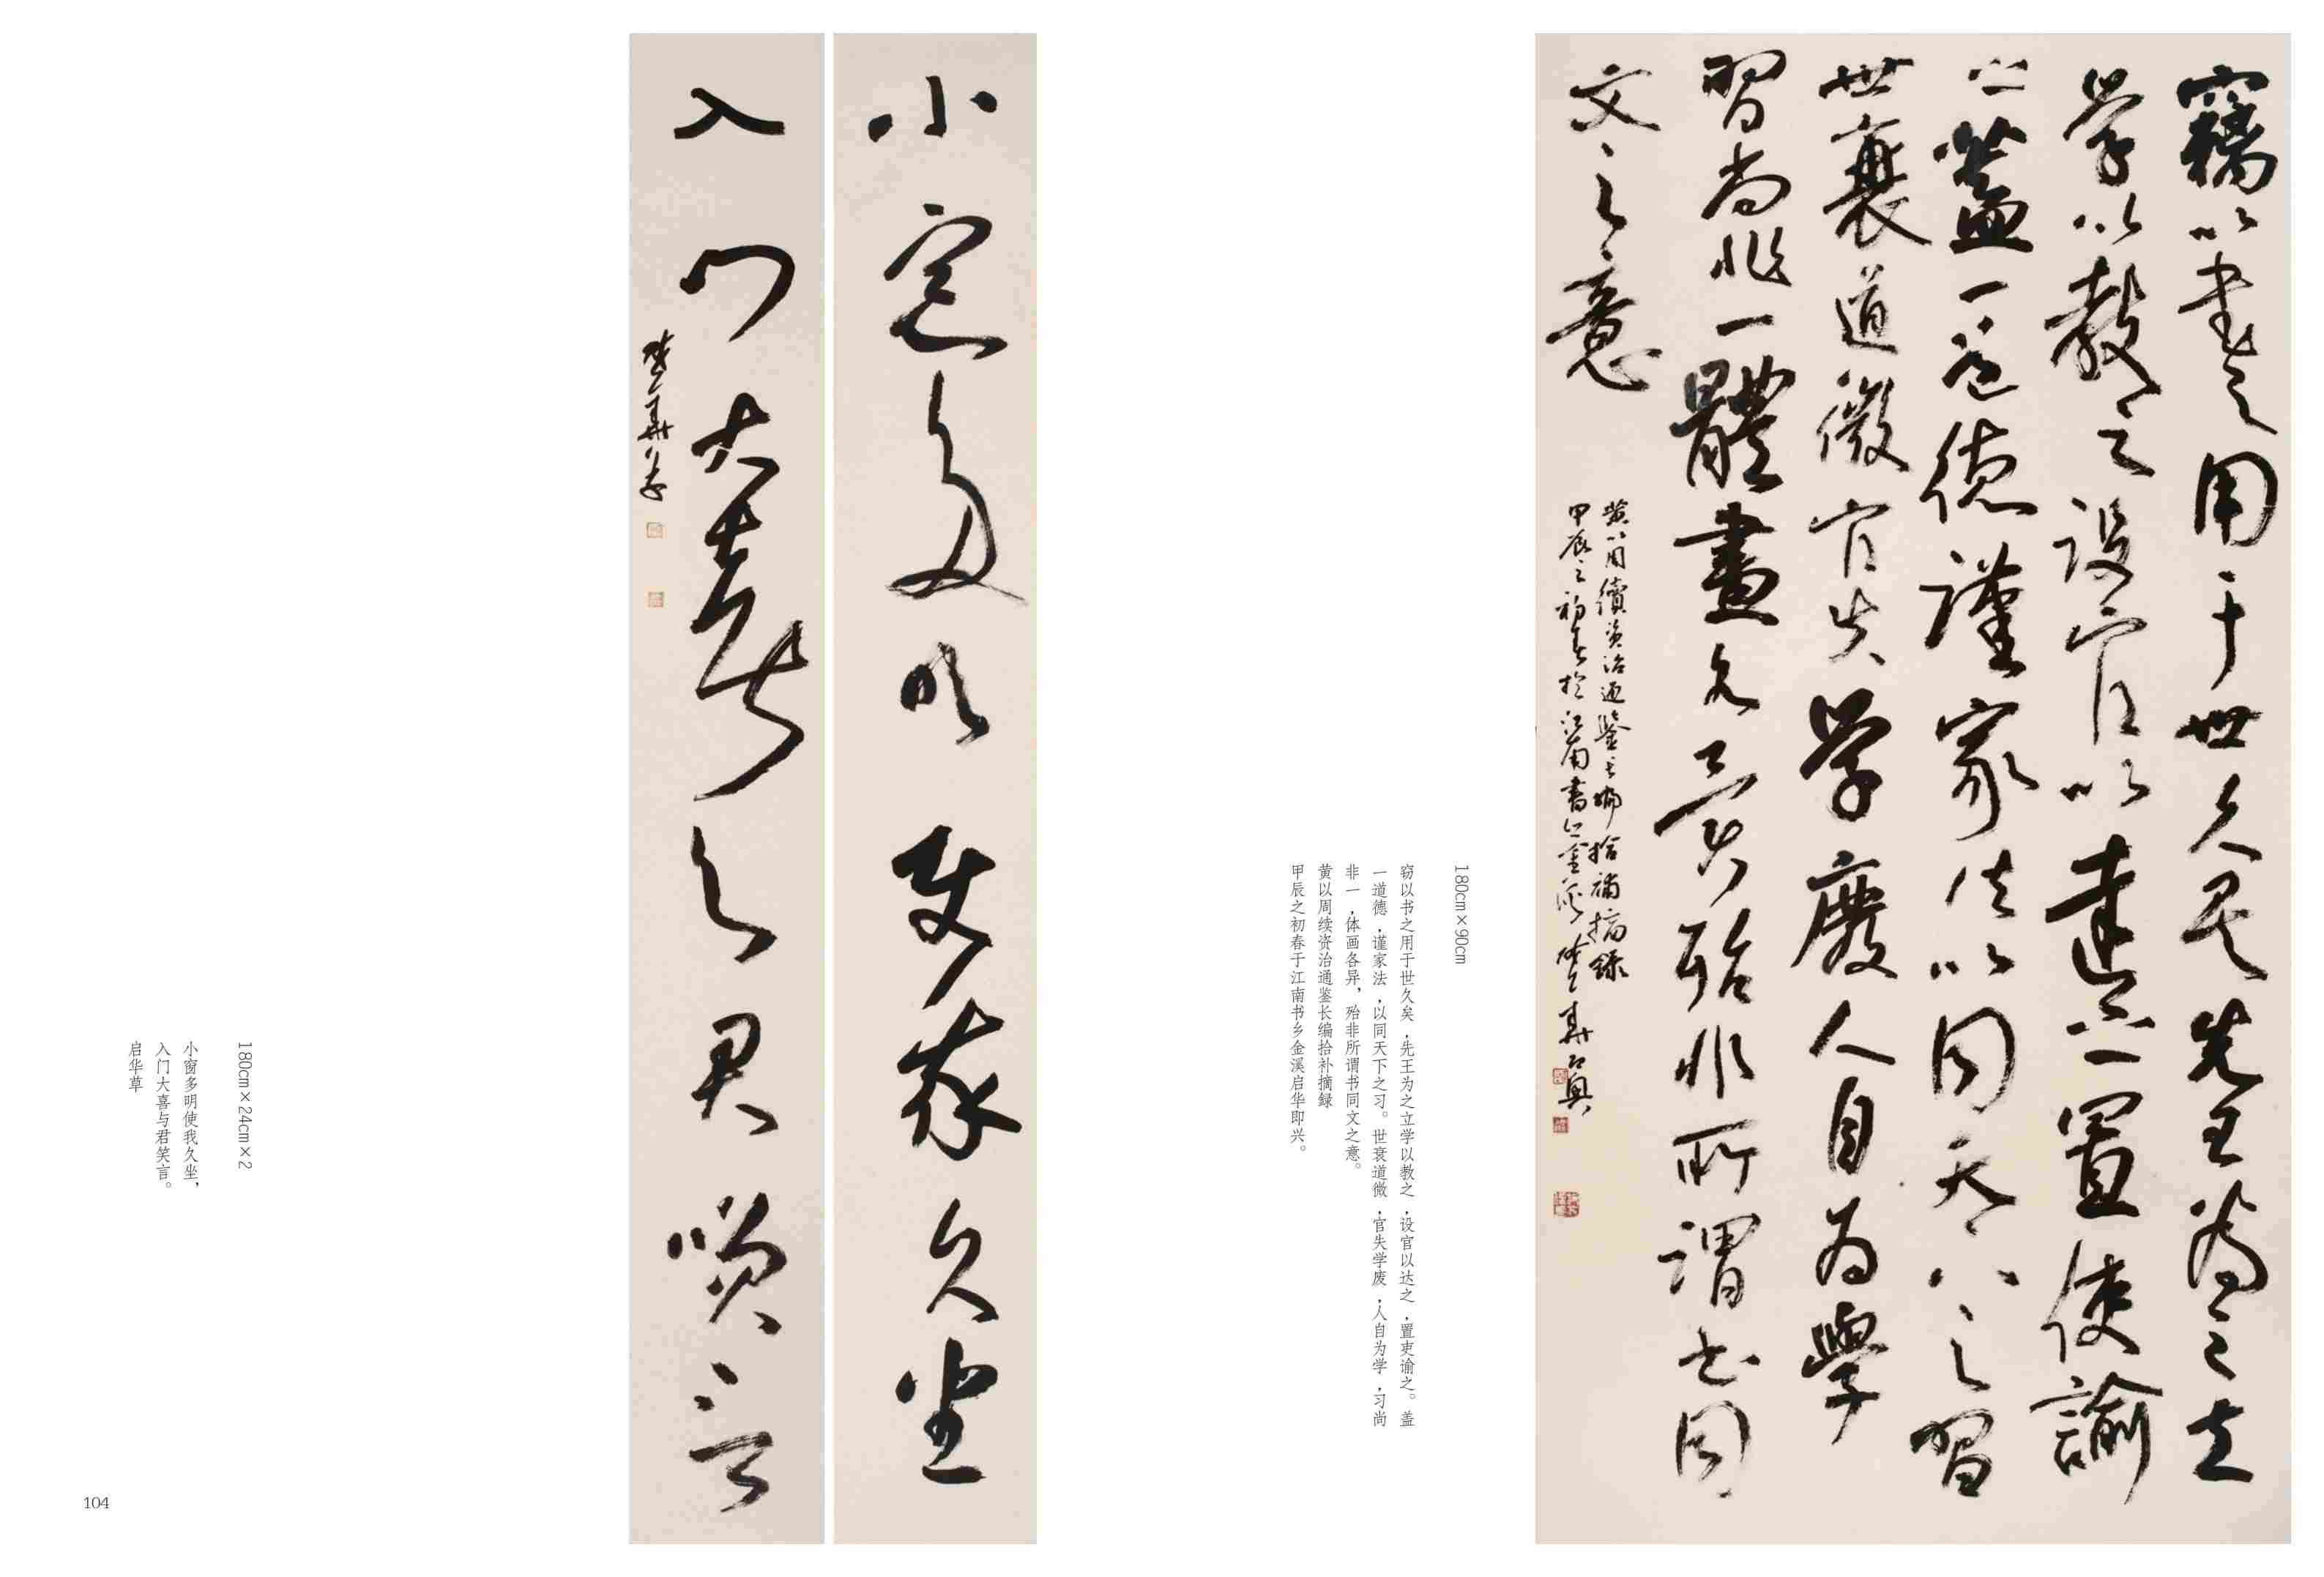 竊以書之用于世久矣先王為之立
學以教之設官以達之置使諭
之蓋一道德謹家法以同天下之習
世衰道微官失學廢人自為學
習尚非一體畫各異殆非所謂書同
文之意
黃以周續資治通鑒長編拾補摘録
甲辰之初春於江南書鄉金溪啓華即興
180cm×90cm
窃以书之用于世久矣，先王为之立学以教之，设官以达之，置吏谕之。盖
一道德，谨家法，以同天下之习。世衰道微，官失学废，人自为学，习尚
非一，体画各异，殆非所谓书同文之意。
黄以周续资治通鉴长编拾补摘録
甲辰之初春于江南书乡金溪启华即兴。
小窗多明使我久坐
入門大喜与君咲言
啓華草
180cm×24cm×2
小窗多明使我久坐，
入门大喜与君笑言。
启华草
104